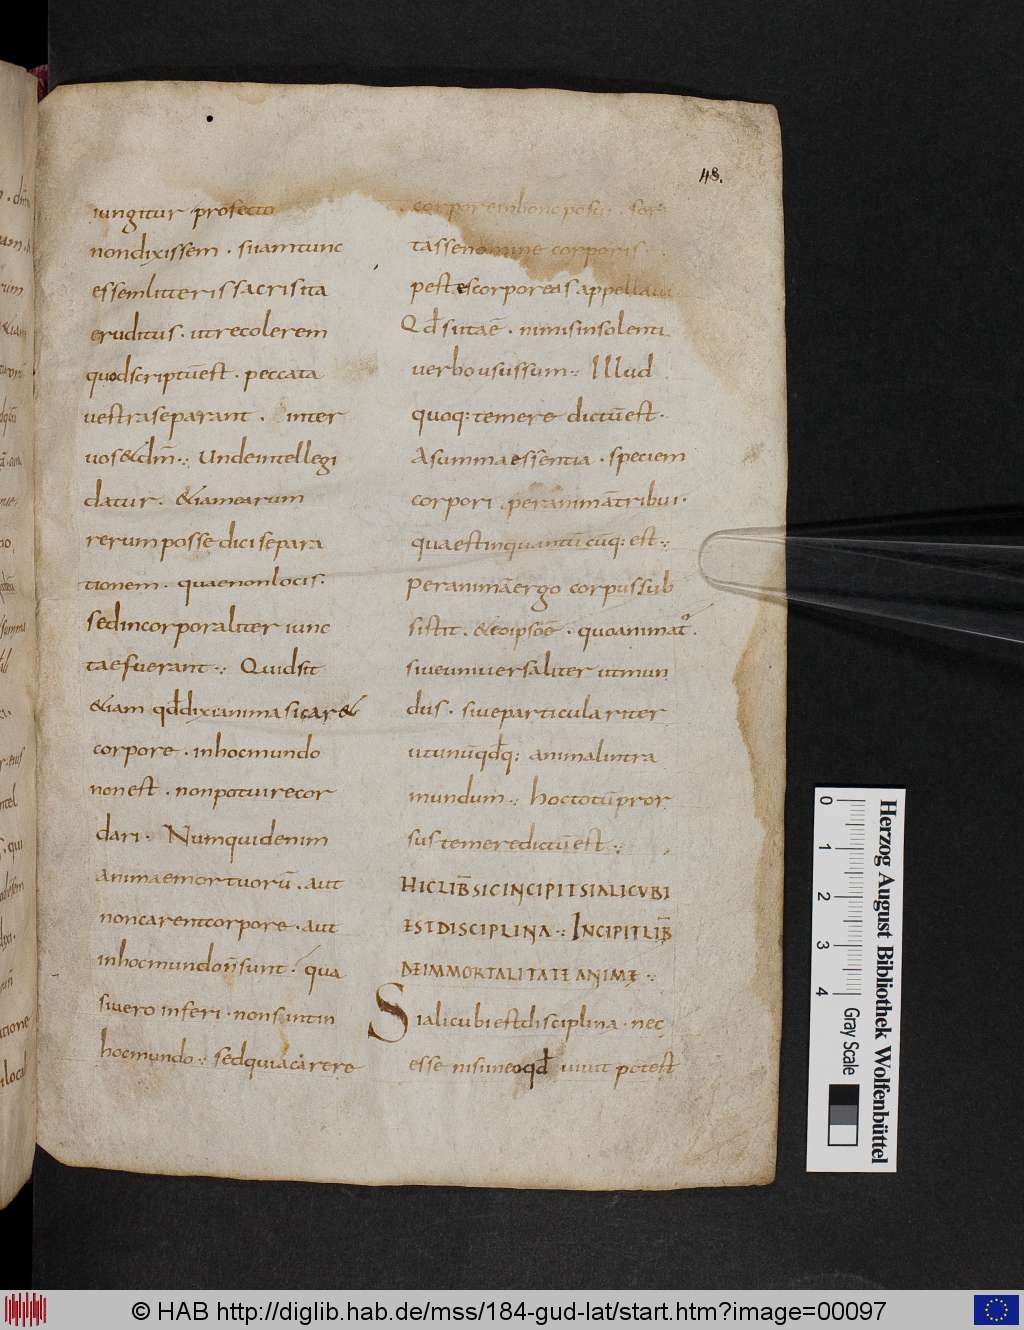 48.
iungitur profecto
nondixissem . siiamtunc
essemlitteris sacris ita
eruditus . utrecolerem
quodscriptūest . peccata
uestraseparant . inter
uos&dm̄ . : Undeintellegi
datur . &iamearum
rerumposse dici separa
tionem . quaenonlocis .
sedincorporaliter iunc
taefuerant . : Quidsit
&iam qđdixianimasicar&
corpore . inhocmundo
nonest . nonpotuirecor
dari . Numquidenim
animaemortuorū . aut
noncarentcorpore . aut
inhocmundon̄sunt . qua
siuero inferi . nonsintin
hocmundo . : sedquiacarere
corporeinbonoposui . for
tassenomine corporis
pestescorporeas appellaui
Qđ siitaē . nimisinsolenti
uerbo ususSum . : Illud
quoq: temere dictūest .
Asummaessentia . speciem
corpori peranimātribui .
quaestinquantūcūq: est . :
Peranimāergo corpussub
sistit . &eoipsoē . quoanimat᷒ .
siueuniuersaliter utmun
dus . siueparticulariter
utunūqđq: animalintra
mundum . : hoctotūpror
sustemeredictūest . :
HICLIB̄SICINCIPITSIALICUBI
ESTDISCIPLINA . : INCIPITLIB̄
DEIMMORTALITATEANIMĘ . :
Sialicubiestdisciplina . nec
esse nisiineoqđ uiuit potest
Herzog August Bibliothek Wolfenbüttel
0 1 2 3 4 Gray Scale
© HAB http://diglib.hab.de/mss/184-gud-lat/start.htm?image=00097